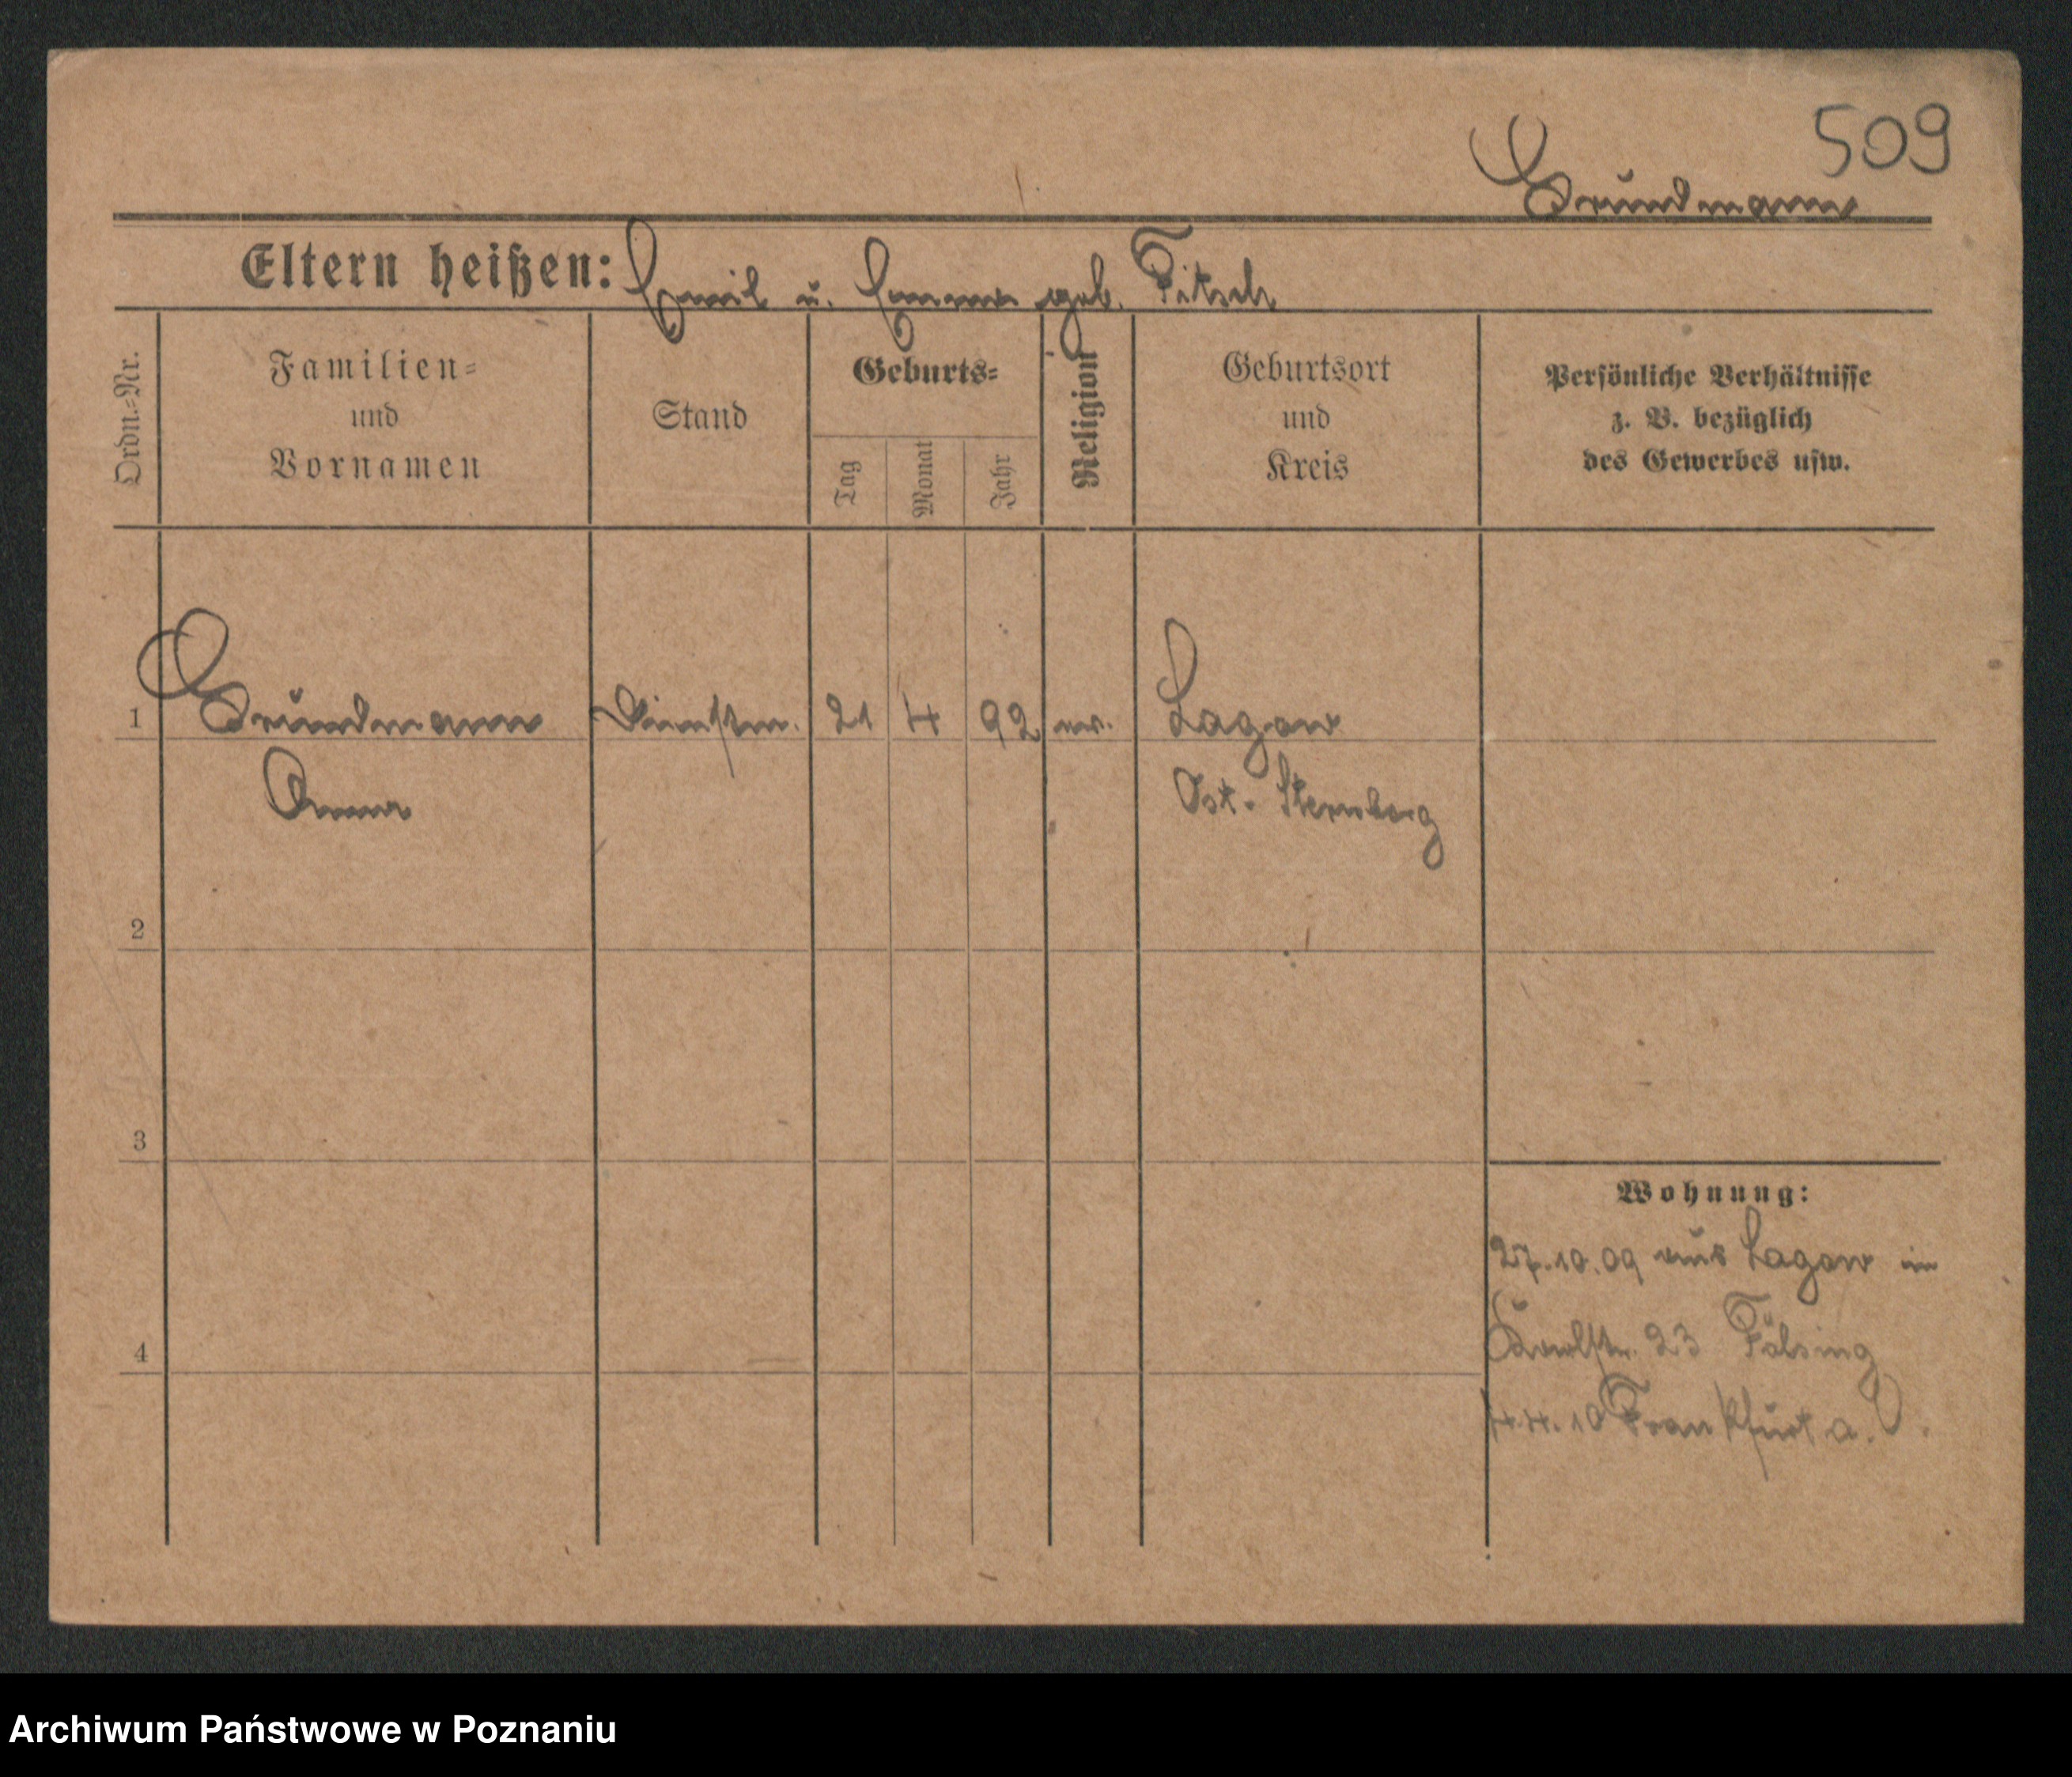 509
Grundmann
Eltern heißen: Emil u. Emma geb. Fitsch
Ordn.-Nr.
Familien-
und
Vornamen
Stand
Geburts-
Tag
Monat
Jahr
Religion
Geburtsort
und
Kreis
Persönliche Verhältnisse
z. B. bezüglich
des Gewerbes usw.
1 Grundmann Dienstm. 21 4 92 ev. Lagow
Anna Ost-Sternberg
2
3
4
Wohnung:
27.10.09 aus Lagow in
Karlstr. 23 Fölsing
4.4.10 Frankfurt a. O.
Archiwum Państwowe w Poznaniu